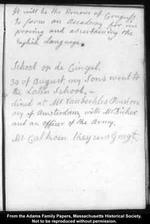 It will be the Honour of Congress
to form an Academy for im
proving and ascertaining the
English Language.
School op de Cingel.
30 of August my Sons went to
the Latin School, —
dined at Mr
of Amsterdam, with Mr
and an officer of the Army.
Mr Calhoun
From the Adams Family Papers, Massachusetts Historical Society.
Not to be reproduced without permission.